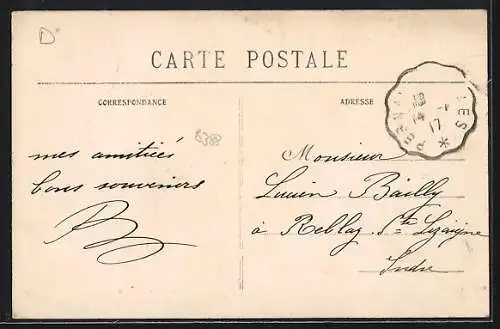 D
CARTE POSTALE
CORRESPONDANCE
ADRESSE
mes amitiés
bons souvenirs
Monsieur
Lucien Bailly
à Reblay Ste Lizaigne
Indre